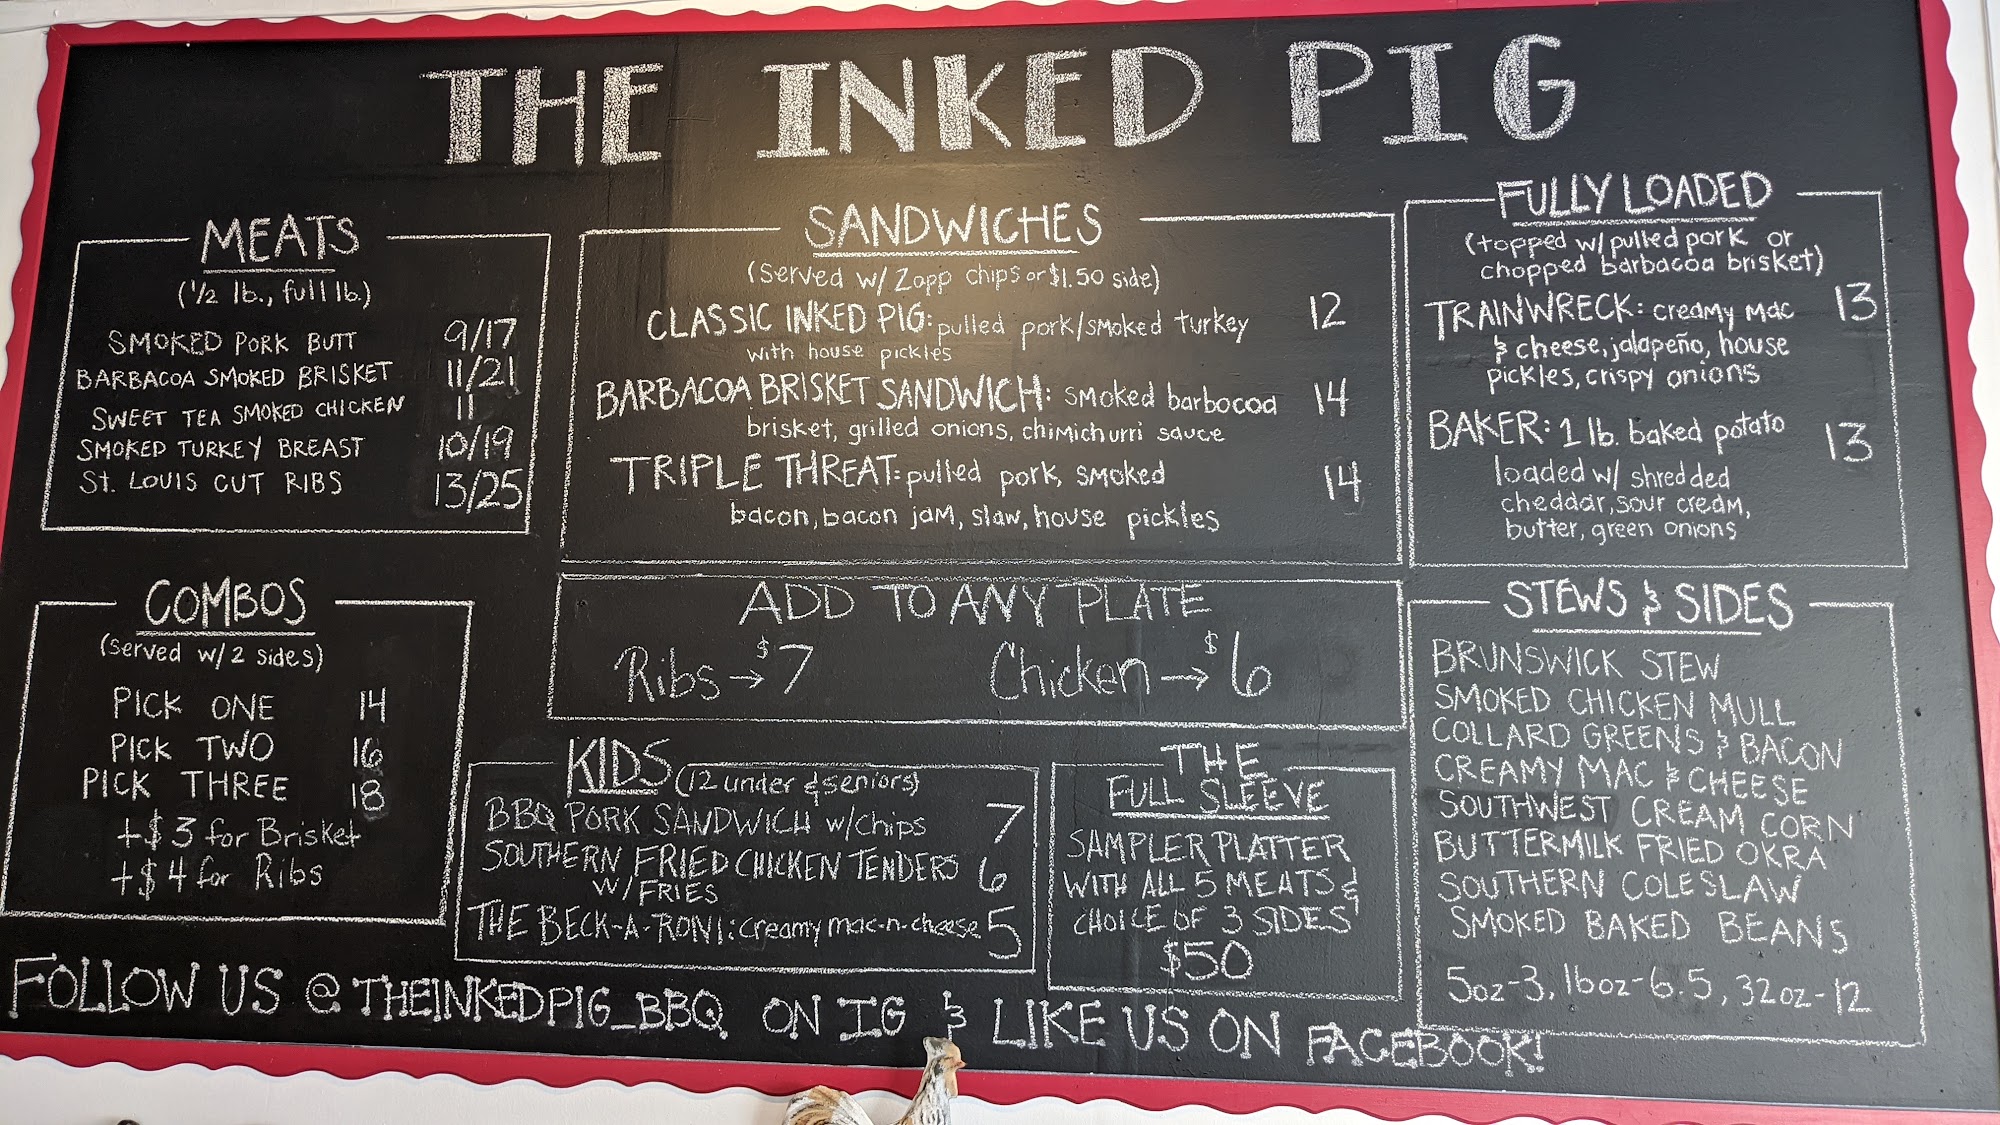 THE INKED PIG
MEATS
(1/2 lb., full lb.)
SMOKED PORK BUTT 9/17
BARBACOA SMOKED BRISKET 11/21
SWEET TEA SMOKED CHICKEN 11
SMOKED TURKEY BREAST 10/19
St. LOUIS CUT RIBS 13/25
COMBOS
(served w/ 2 sides)
PICK ONE 14
PICK TWO 16
PICK THREE 18
+$3 for Brisket
+$4 for Ribs
SANDWICHES
(served w/ Zapp chips or $1.50 side)
CLASSIC INKED PIG: pulled pork/smoked turkey 12
with house pickles
BARBACOA BRISKET SANDWICH: smoked barbocoa 14
brisket, grilled onions, chimichurri sauce
TRIPLE THREAT: pulled pork, smoked 14
bacon, bacon jam, slaw, house pickles
ADD TO ANY PLATE
Ribs → $7 Chicken → $6
KIDS (12 under & seniors)
BBQ PORK SANDWICH w/chips 7
SOUTHERN FRIED CHICKEN TENDERS 6
W/FRIES
THE BECK-A-RONI: creamy mac-n-cheese 5
THE
FULL SLEEVE
SAMPLER PLATTER
WITH ALL 5 MEATS &
CHOICE OF 3 SIDES
$50
FULLY LOADED
(topped w/pulled pork or
chopped barbacoa brisket)
TRAINWRECK: creamy mac 13
& cheese, jalapeño, house
pickles, crispy onions
BAKER: 1 lb. baked potato 13
loaded w/ shredded
cheddar, sour cream,
butter, green onions
STEWS & SIDES
BRUNSWICK STEW
SMOKED CHICKEN MULL
COLLARD GREENS & BACON
CREAMY MAC & CHEESE
SOUTHWEST CREAM CORN
BUTTERMILK FRIED OKRA
SOUTHERN COLESLAW
SMOKED BAKED BEANS
5oz-3, 16oz-6.5, 32oz-12
FOLLOW US @THEINKEDPIG_BBQ ON IG & LIKE US ON FACEBOOK!